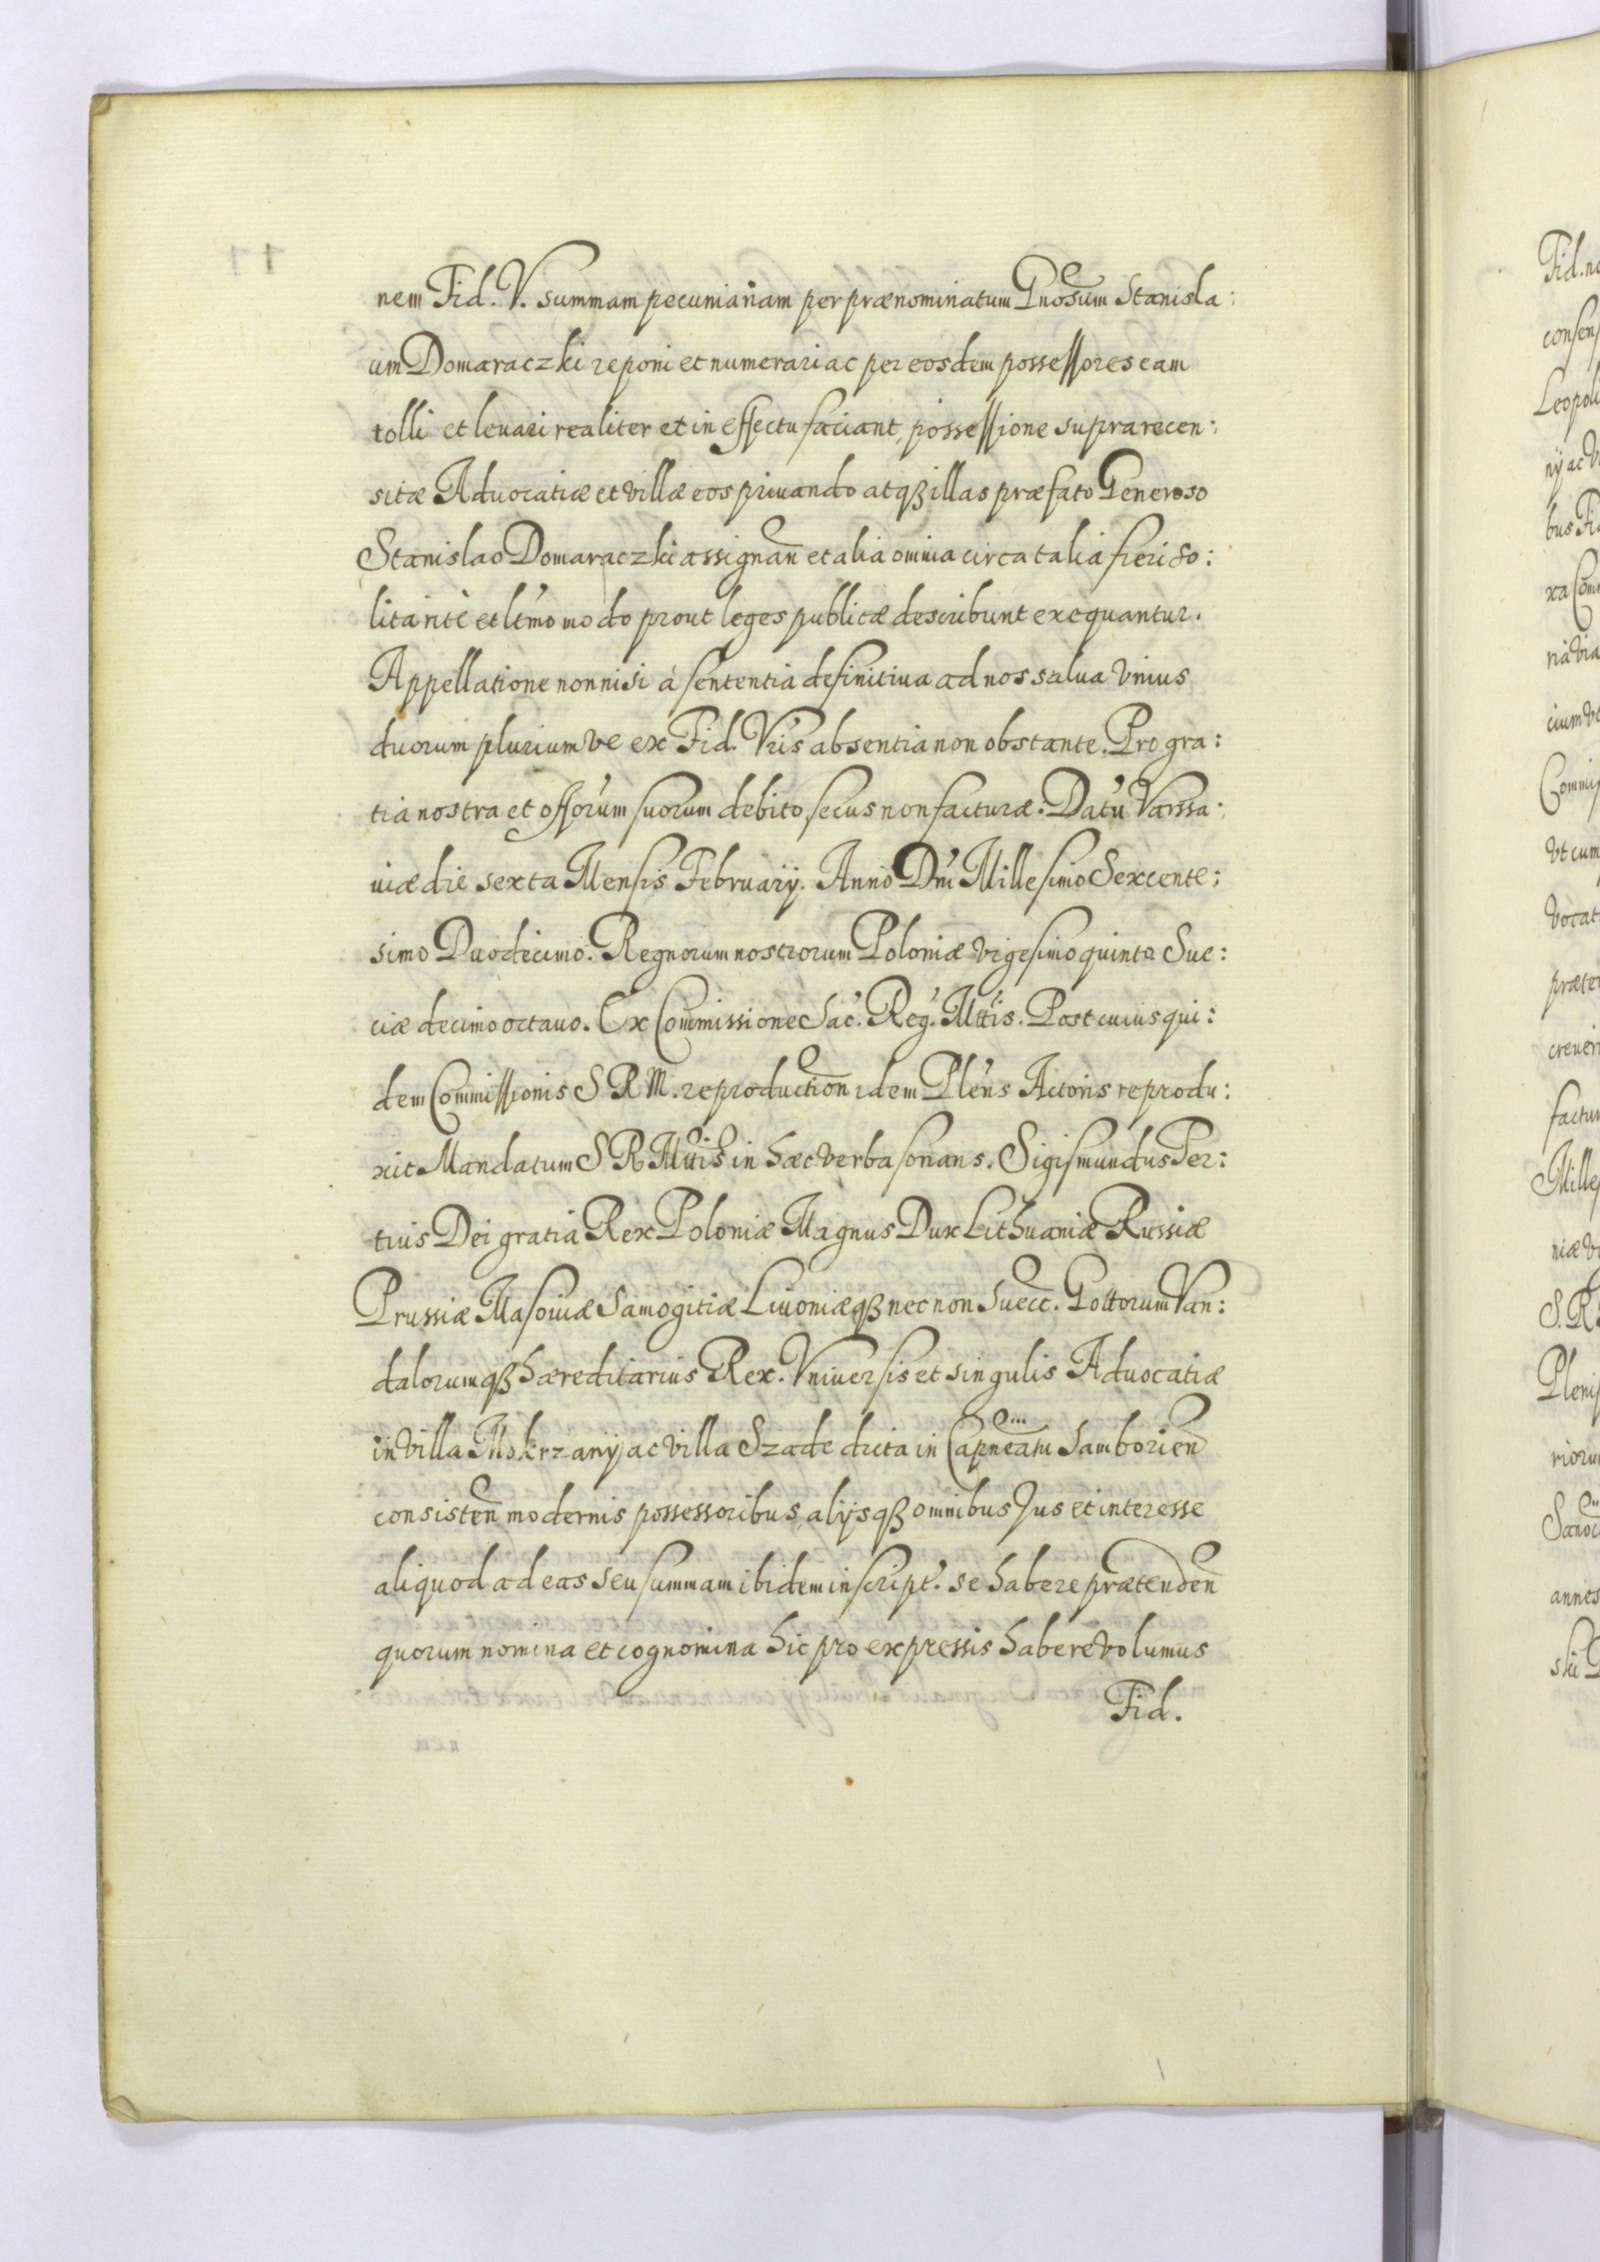 nem Fid. V. summam pecuniariam per prænominatum Gnosum Stanisla:
um Domaraczki reponi et numerari ac per eosdem possessores eam
tolli et levari realiter et in effectu faciant, possessione suprarecen:
sitæ Advocatiæ et villæ eos privando atqȝ illas præfato Generoso
Stanislao Domaraczki assignan̄ et alia omnia circa talia fieri so:
lita rite et ltmo modo prout leges publicæ describunt exequantur.
Appellatione nonnisi à sententia definitiva ad nos salva Vnius
duorum plurium ve ex Fid. Vris absentia non obstante. Pro gra:
tia nostra et offorum suorum debito secus non facturæ. Datu Varssa:
viæ die sexta Mensis Februarij. Anno Dni Millesimo Sexcente:
simo Duodecimo. Regnorum nostrorum Poloniæ vigesimo quinto Sue:
ciæ decimo octavo. Ex Commissione Sac. Reg. Mttis. Post cuius qui:
dem Commissionis S R M. reproduction̄ idem Plens Actoris reprodu:
xit Mandatum S R Mttis in hæc verba sonans. Sigismundus Ter:
tius Dei gratia Rex Poloniæ Magnus Dux Lithuaniæ Russiæ
Prussiæ Masoviæ Samogitiæ Livoniæqȝ nec non Suecc. Gottorum Van:
dalorumqȝ hæreditarius Rex. Vniversis et singulis Advocatiæ
in villa Mokrzany ac villa Szade dicta in Capneatu Samborien̄
consisten̄ modernis possessoribus, alijsqȝ omnibus Jus et interesse
aliquod ad eas seu summam ibidem inscript. se habere prætenden̄
quorum nomina et cognomina hic pro expressis habere volumus
Fid.